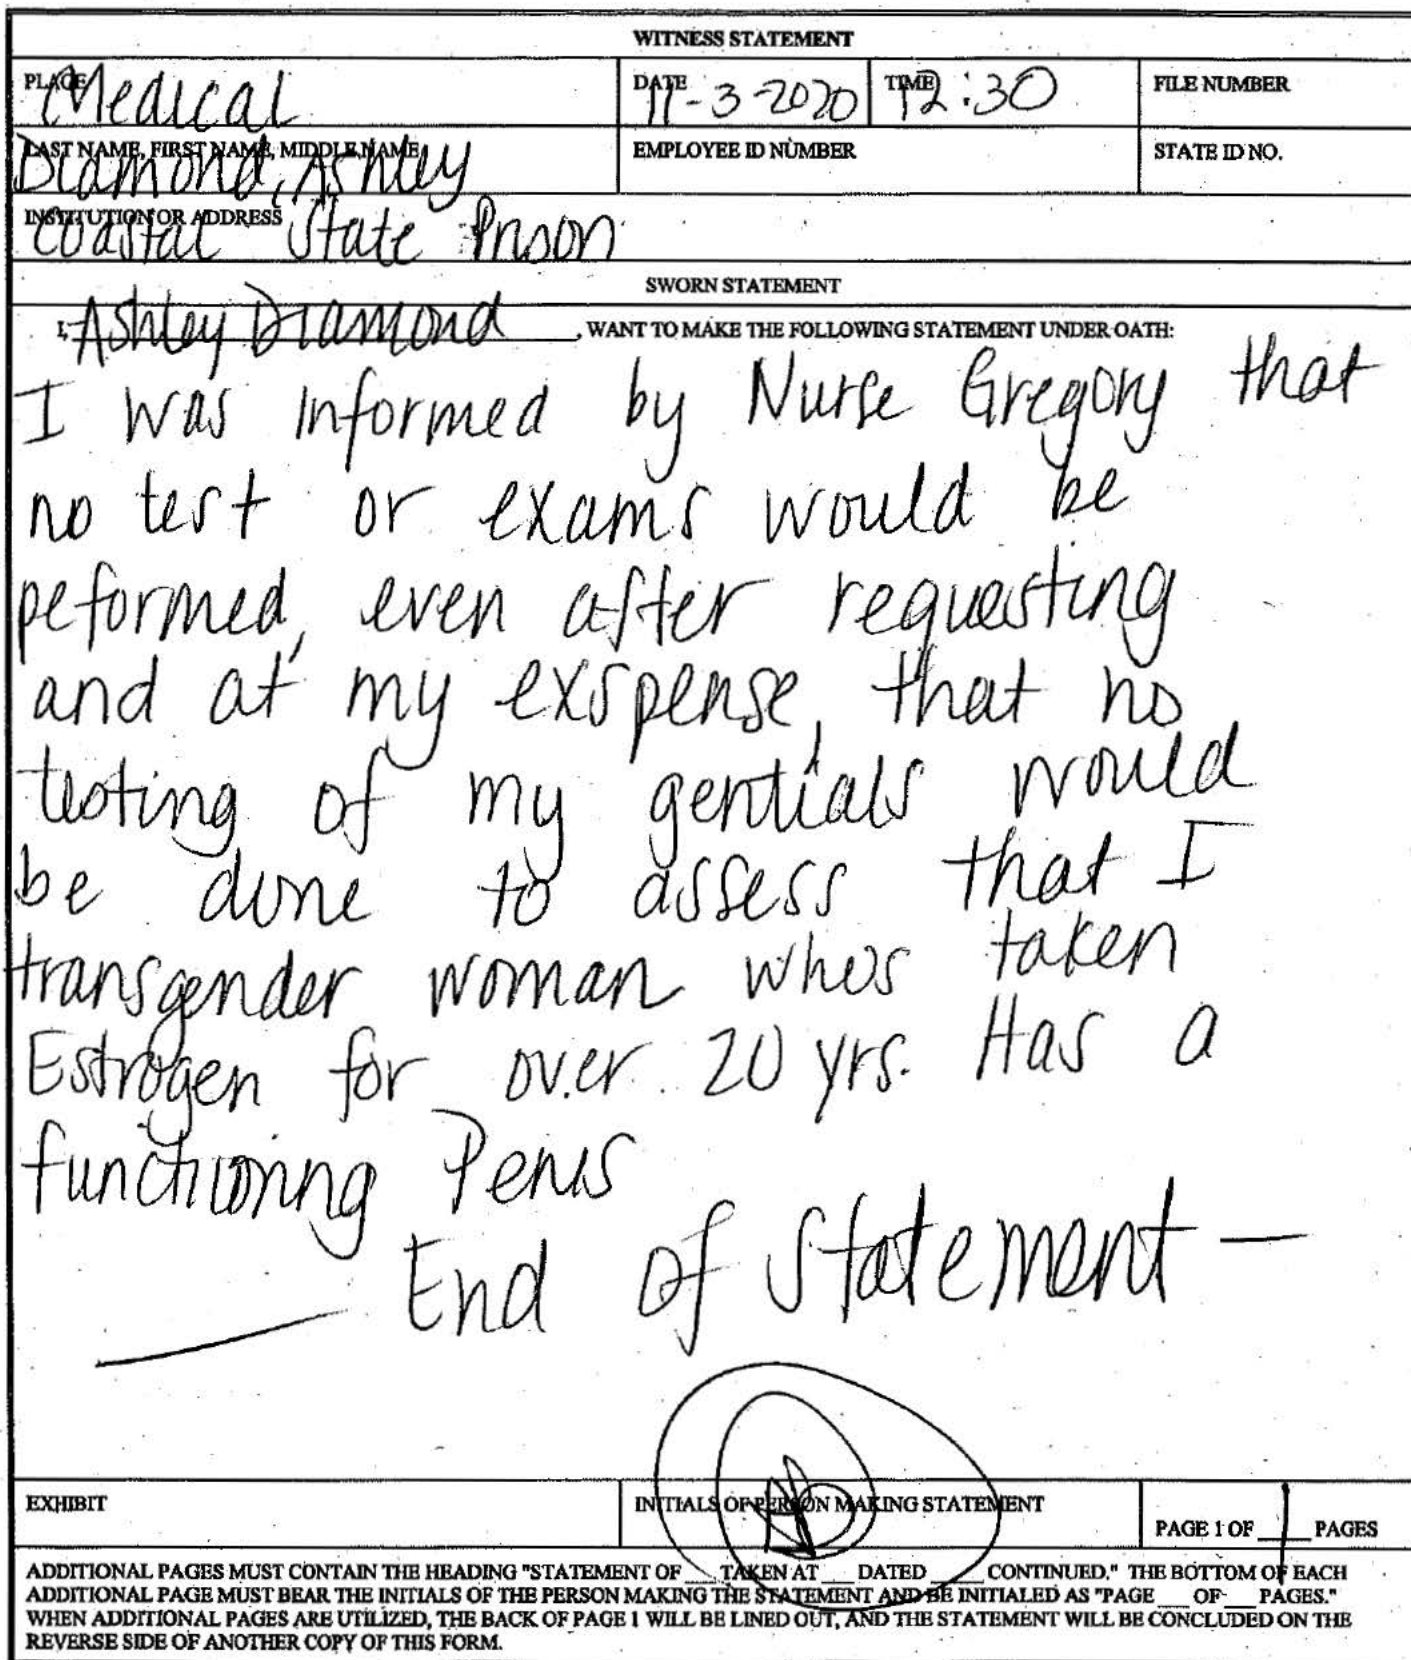 WITNESS STATEMENT
PLACE Medical DATE 11-3-2020 TIME 12:30 FILE NUMBER
LAST NAME, FIRST NAME, MIDDLE NAME Diamond, Ashley EMPLOYEE ID NUMBER STATE ID NO.
INSTITUTION OR ADDRESS Coastal State Prison
SWORN STATEMENT
I, Ashley Diamond, WANT TO MAKE THE FOLLOWING STATEMENT UNDER OATH:
I was informed by Nurse Gregory that
no test or exams would be
peformed, even after requesting
and at my exspense, that no
testing of my gentials would
be done to assess that I
transgender woman whos taken
Estrogen for over 20 yrs. Has a
functioning Penis
End of Statement —
EXHIBIT INITIALS OF PERSON MAKING STATEMENT AD PAGE 1 OF 1 PAGES
ADDITIONAL PAGES MUST CONTAIN THE HEADING "STATEMENT OF ___ TAKEN AT ___ DATED ____ CONTINUED," THE BOTTOM OF EACH
ADDITIONAL PAGE MUST BEAR THE INITIALS OF THE PERSON MAKING THE STATEMENT AND BE INITIALED AS "PAGE ___ OF ___ PAGES."
WHEN ADDITIONAL PAGES ARE UTILIZED, THE BACK OF PAGE 1 WILL BE LINED OUT, AND THE STATEMENT WILL BE CONCLUDED ON THE
REVERSE SIDE OF ANOTHER COPY OF THIS FORM.